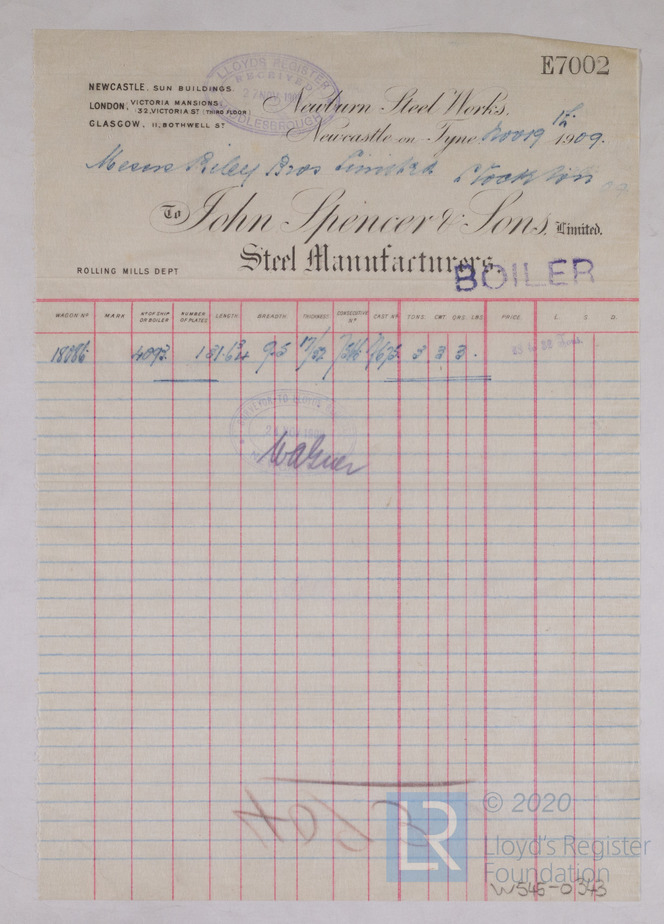 E7002
LLOYD'S REGISTER
RECEIVED
27 NOV 190
MIDDLESBROUGH
NEWCASTLE. SUN BUILDINGS.
LONDON, VICTORIA MANSIONS,
32, VICTORIA ST (THIRD FLOOR)
GLASGOW, 11, BOTHWELL ST
Newburn Steel Works.
Newcastle on Tyne Nov 19th 1909.
Messrs Riley Bros Limited Stockton
To John Spencer & Sons, Limited.
Steel Manufacturers.
BOILER
ROLLING MILLS DEPT
WAGON No MARK No OF SHIP OR BOILER NUMBER OF PLATES LENGTH. BREADTH. THICKNESS CONSECUTIVE No CAST No TONS. CWT QRS. LBS PRICE. L. S. D.
18086 4093 1 9-5 3 3 3 .
SURVEYOR TO LLOYD'S
Wagner
© 2020
LR
Lloyd's Register
Foundation
W545-0343